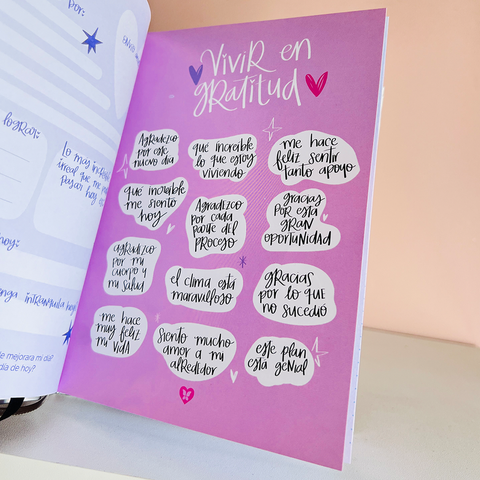 por:
lograr:
hoy:
e mejorara mi día?
día de hoy?
Vivir en
gratitud
Agradezco
por este
nuevo día
qué increíble
lo que estoy
viviendo
me hace
feliz sentir
tanto apoyo
qué increíble
me siento
hoy
Agradezco
por cada
parte del
proceso
gracias
por esta
gran
oportunidad
agradezco
por mi
cuerpo y
mi salud
el clima está
maravilloso
gracias
por lo que
no sucedió
me hace
muy feliz
mi vida
siento mucho
amor a mi
alrededor
este plan
está genial